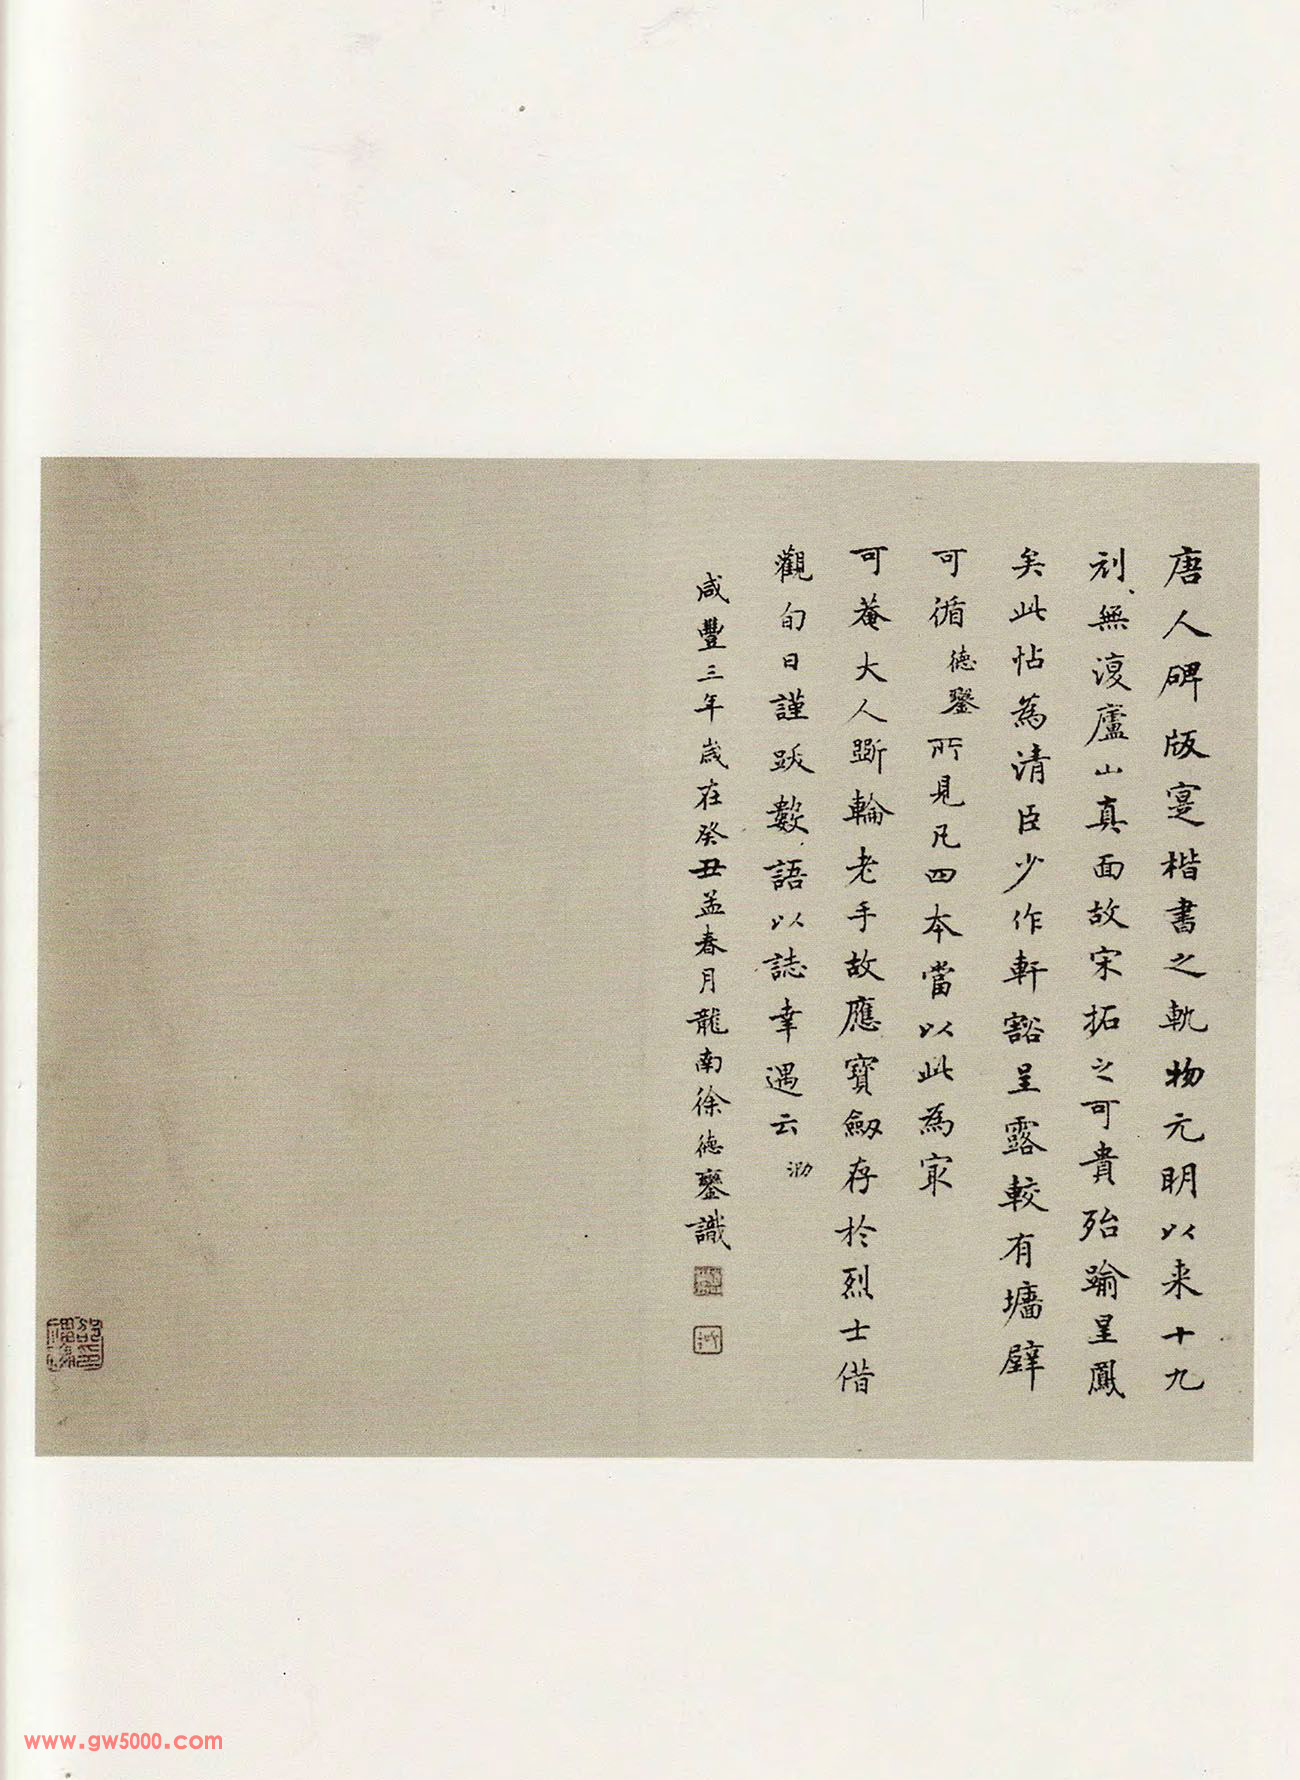 唐人碑版寔楷書之軌物元明以来十九
刓無復廬山真面故宋拓之可貴殆踰星鳳
矣此帖為清臣少作軒豁呈露較有墻壁
可循德鋆所見凡四本當以此為冣
可菴大人斵輪老手故應寶劔存於烈士借
觀旬日謹跋數語以誌幸遇云
咸豐三年歲在癸丑孟春月龍南徐德鋆識
www.gw5000.com